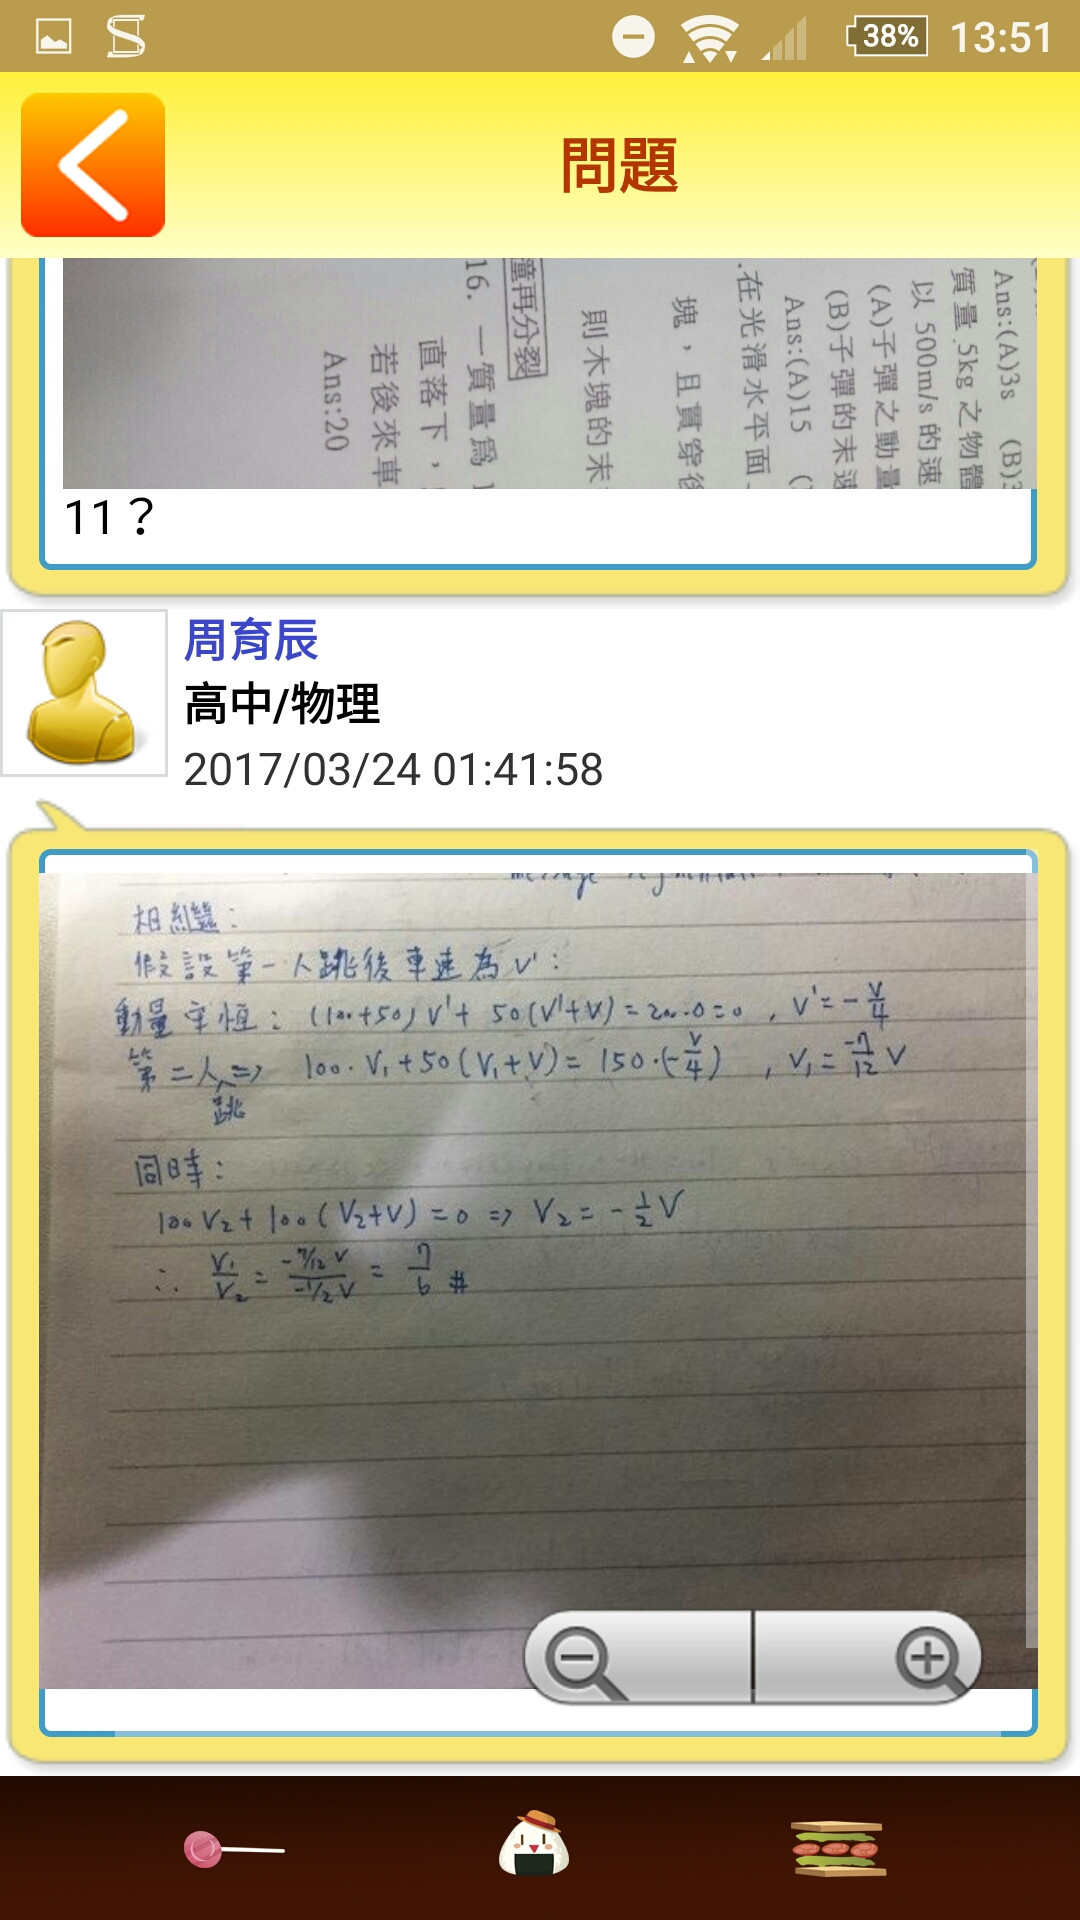 38% 13:51
問題
Ans:(A)3s (B)3
質量 5kg 之物體
以 500m/s 的速
(A)子彈之動量
(B)子彈的末速
Ans:(A)15 (
.在光滑水平面
塊，且貫穿後
則木塊的末
撞再分裂
16. 一質量為 1
直落下，
若後來車
Ans:20
11？
周育辰
高中/物理
2017/03/24 01:41:58
相繼：
假設第一人跳後車速為 V'：
動量守恆：(100+50)V'+ 50(V'+V)=200·0=0 , V'=-V/4
第二人跳 => 100·V₁+50(V₁+V)= 150·(-V/4) , V₁=-7/12 V
同時：
100V₂+100(V₂+V)=0 => V₂=-1/2 V
∴ V₁/V₂ = (-7/12 V)/(-1/2 V) = 7/6 #